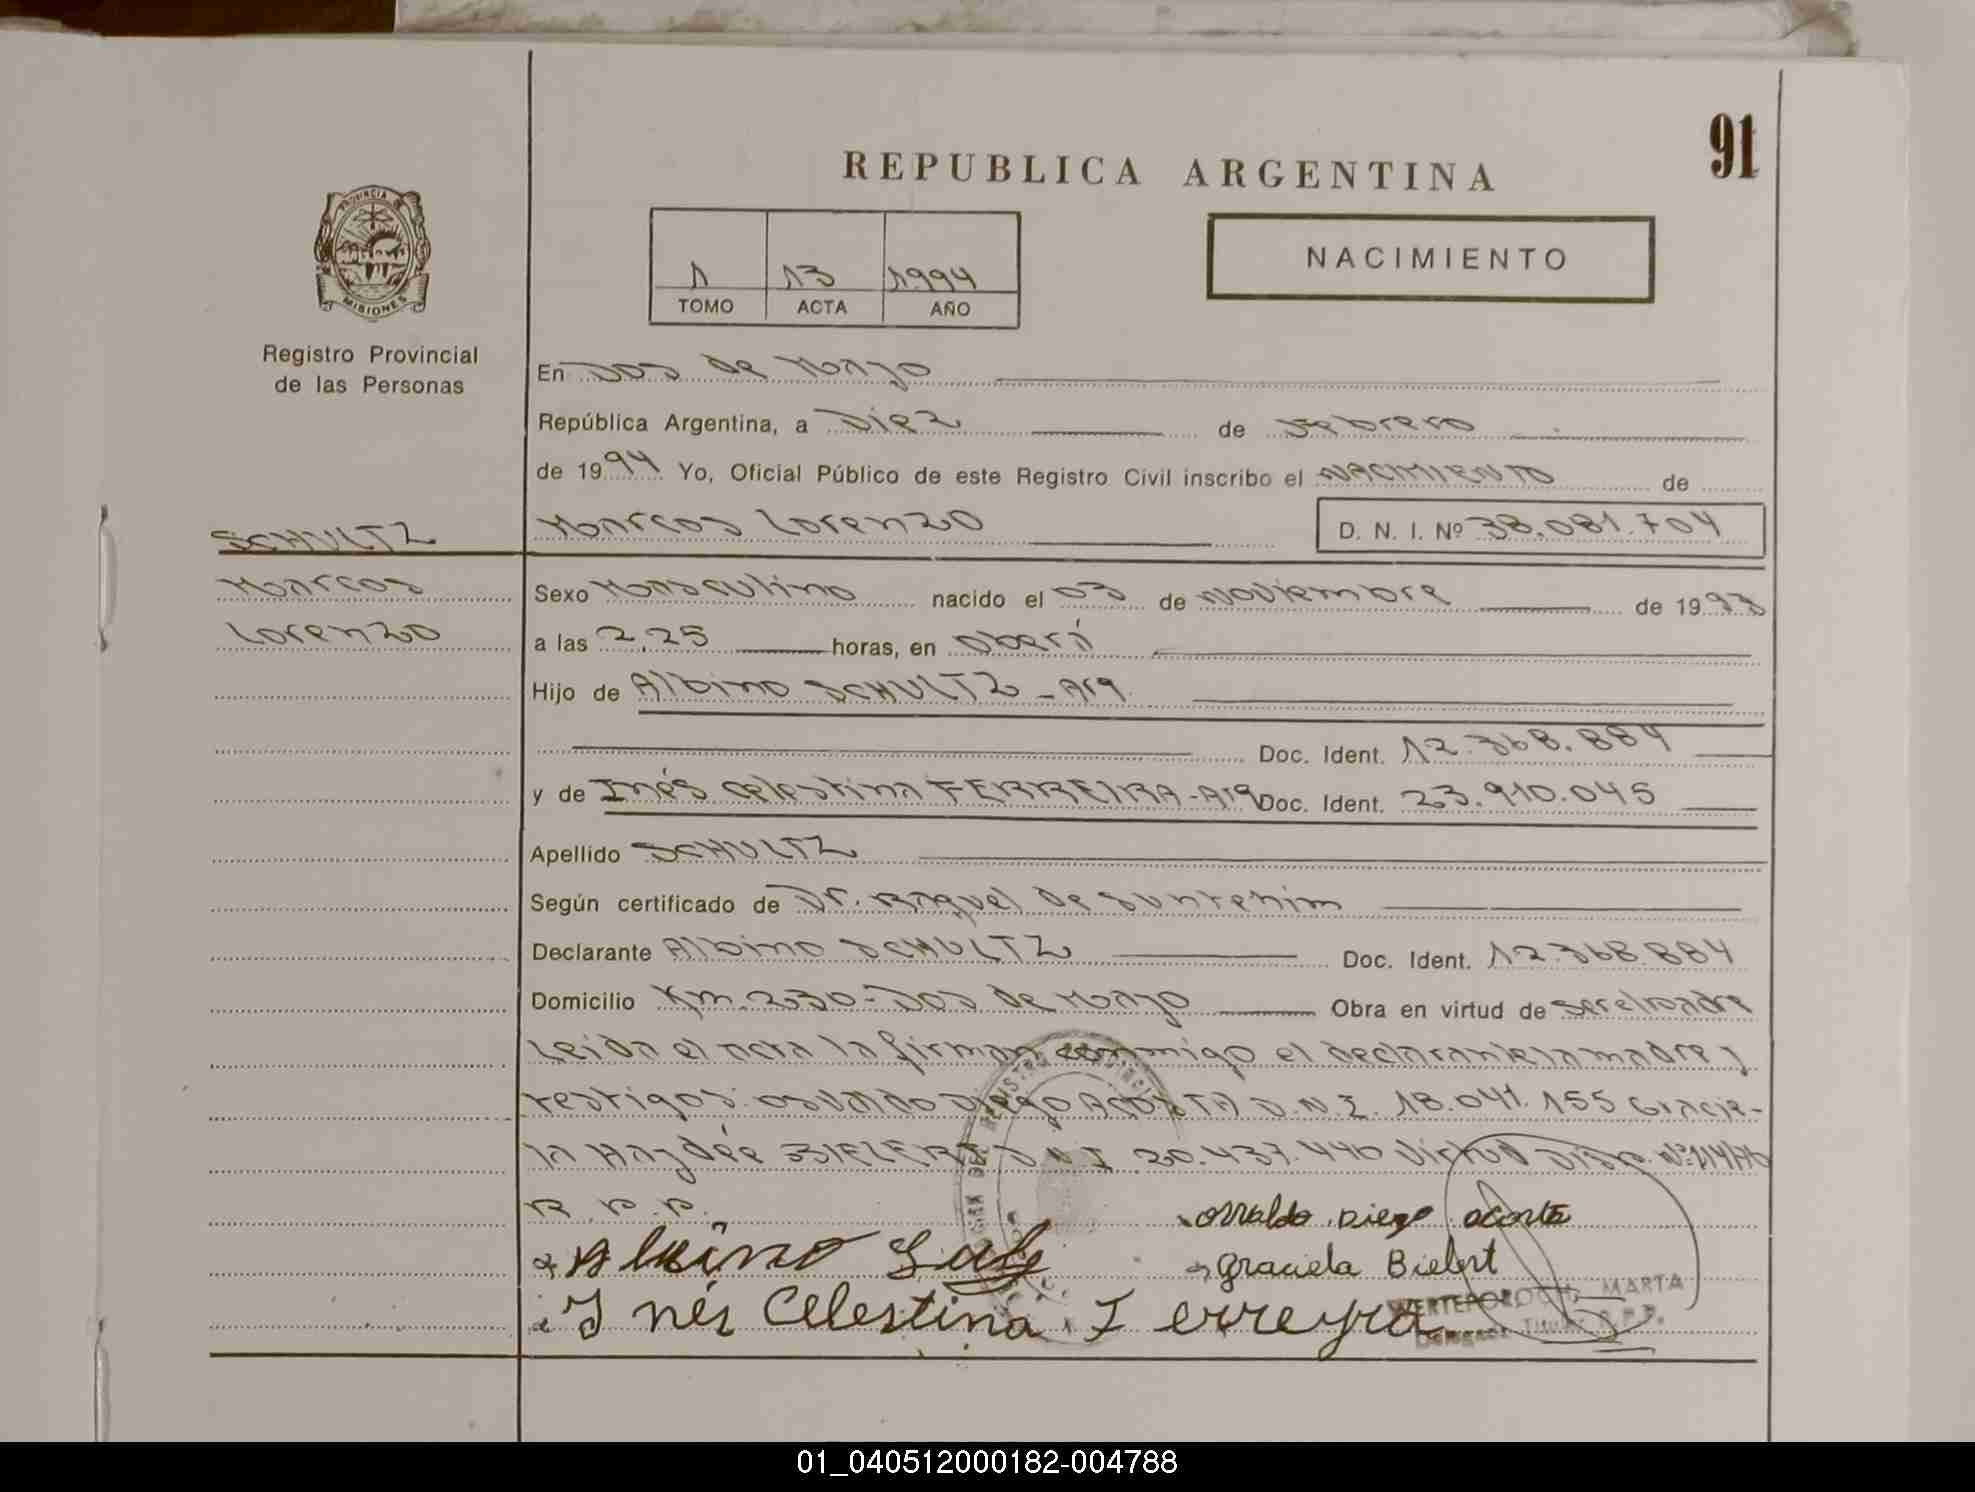 91
REPUBLICA ARGENTINA
PROVINCIA DE
MISIONES
1 13 1994
TOMO ACTA AÑO
NACIMIENTO
Registro Provincial
de las Personas
En Dos de Mayo
República Argentina, a Diez de Febrero
de 1994 Yo, Oficial Público de este Registro Civil inscribo el NACIMIENTO de
SCHULTZ
Marcos Lorenzo D. N. I. Nº 38.081.704
Marcos
Lorenzo
Sexo Masculino nacido el 03 de Noviembre de 1993
a las 2,25 horas, en Oberá
Hijo de Albino SCHULTZ - Arg.
Doc. Ident. 12.368.884
y de Inés Celestina FERREIRA - Arg Doc. Ident. 23.910.045
Apellido SCHULTZ
Según certificado de Dr. Raquel de
Declarante Albino SCHULTZ Doc. Ident. 12.368.884
Domicilio Km. 230 - Dos de Mayo Obra en virtud de ser el padre
Leida el acta la firman conmigo el declarante la madre y
testigos: Osvaldo Diego ACOSTA D.N.I. 18.041.155 Gracie-
la Haydée D.N.I 20.437.440 Virtud Disp. Nº
R.P.P.
Osvaldo Diego Acosta
Albino
Graciela Bielert
Inés Celestina Ferreyra
MARTA
Titular R.P.P.
01_040512000182-004788